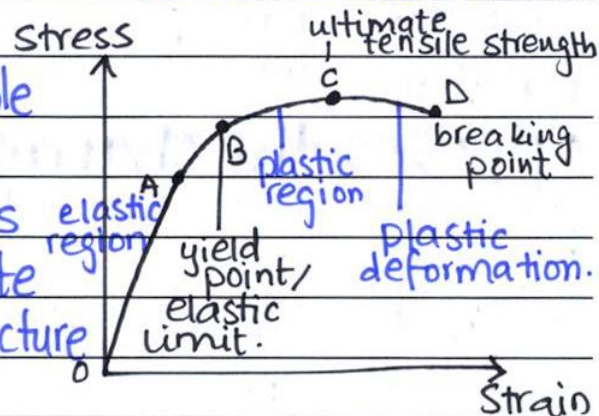 Stress
ultimate
tensile strength
C
D
B
breaking
point
plastic
region
A
elastic
region
yield
point/
elastic
limit.
plastic
deformation.
cture
O
Strain